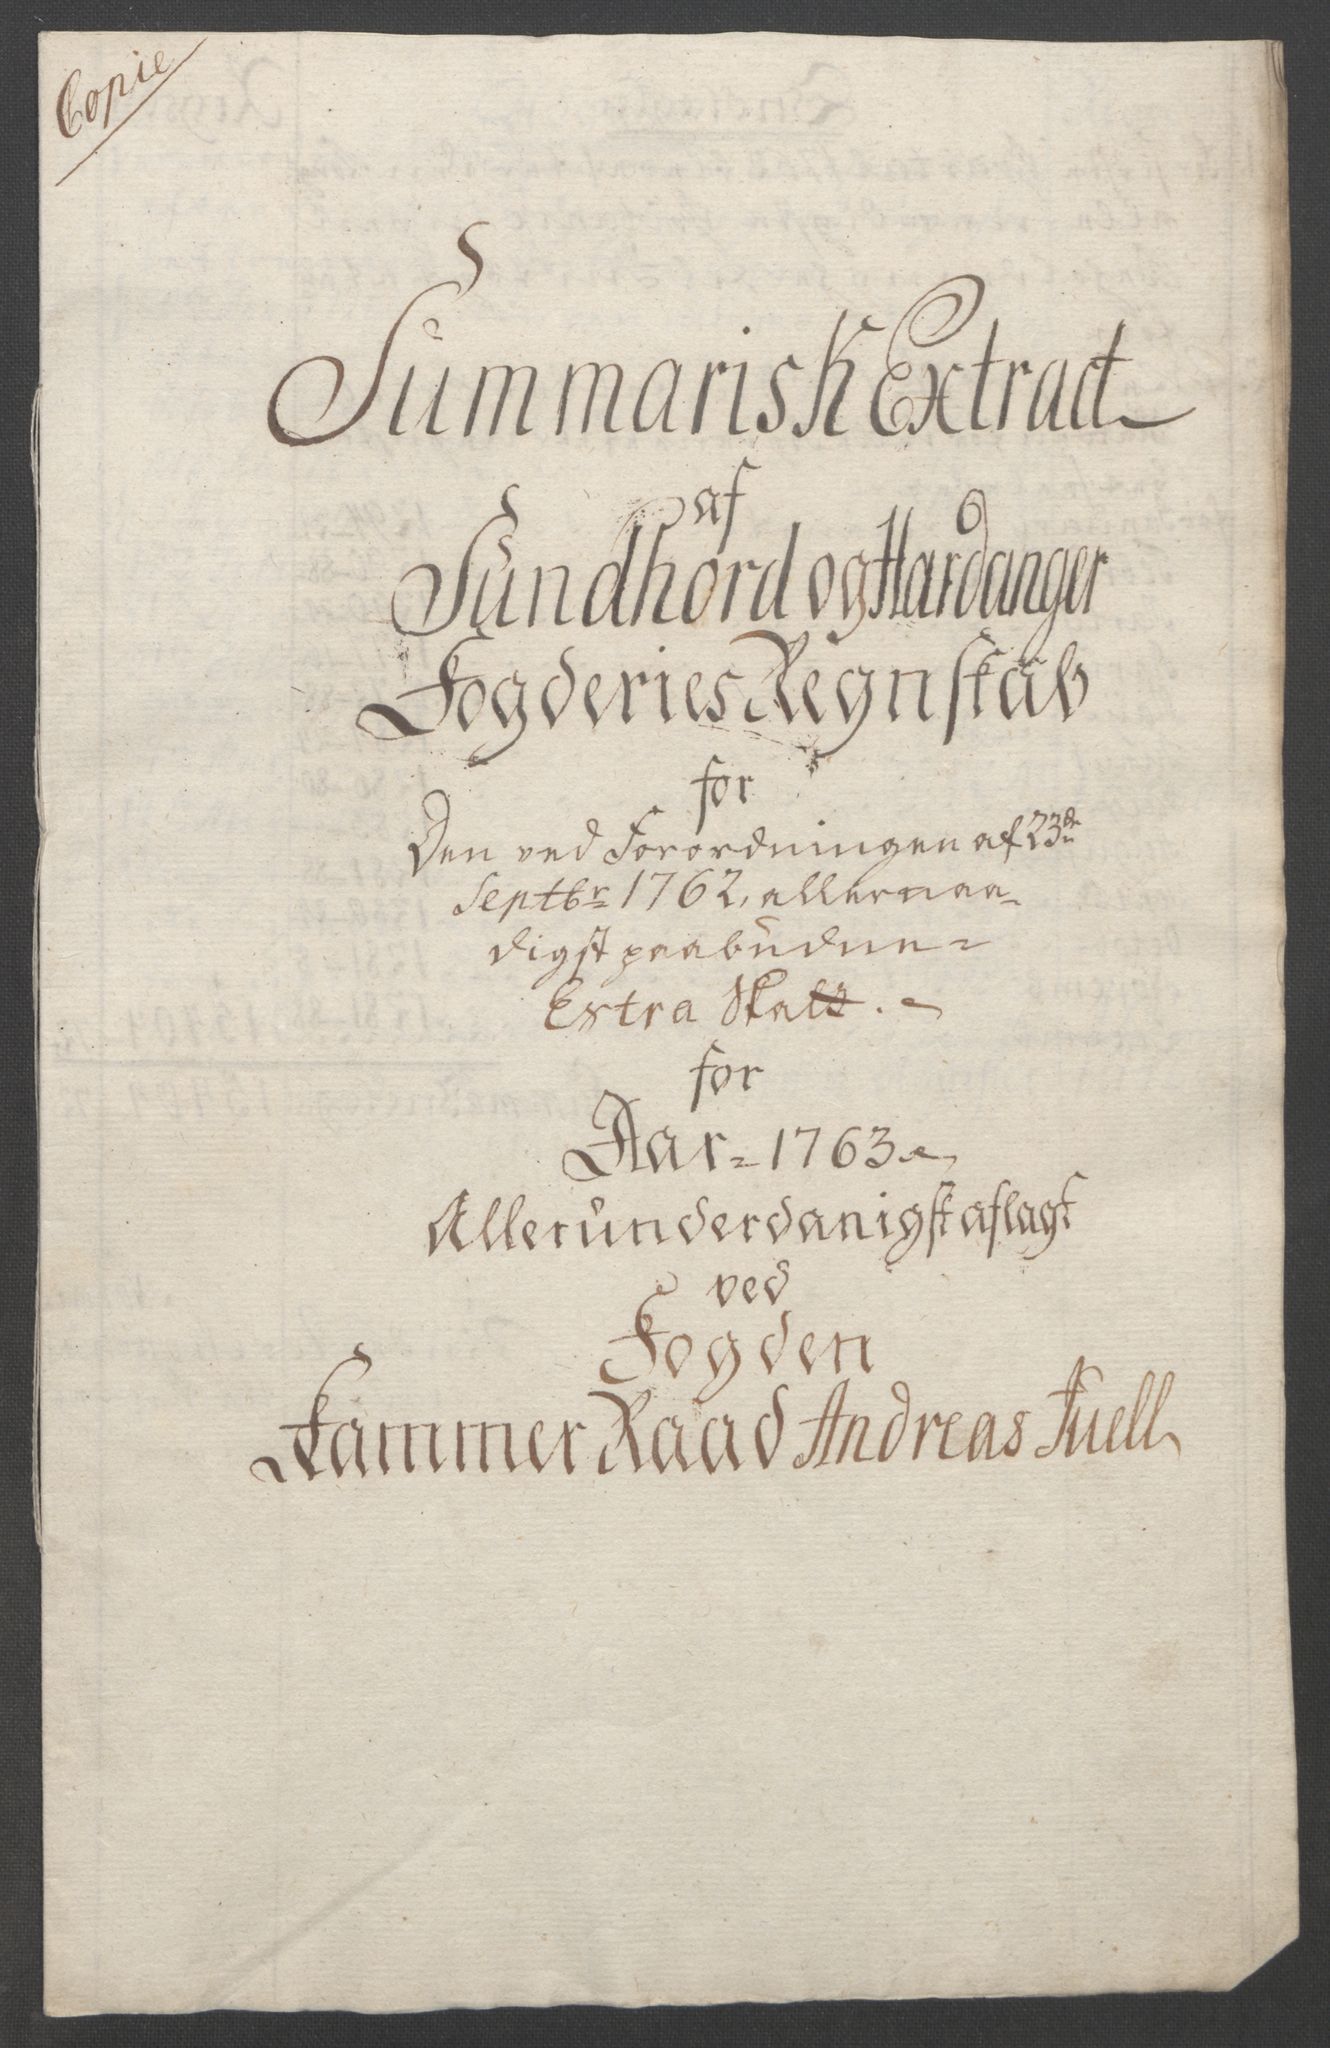 Copie
Summarisk Extract
af
Sundhord og Hardanger
Fogderies Regnskab
for
Den ved Forordningen af 23de
Septbr 1762, allernaa-
digst paabudne
Extra Skatt.
for
Aar 1763
Allerunderdanigst aflagt
ved
Fogden
Kammer Raad Andreas Juell